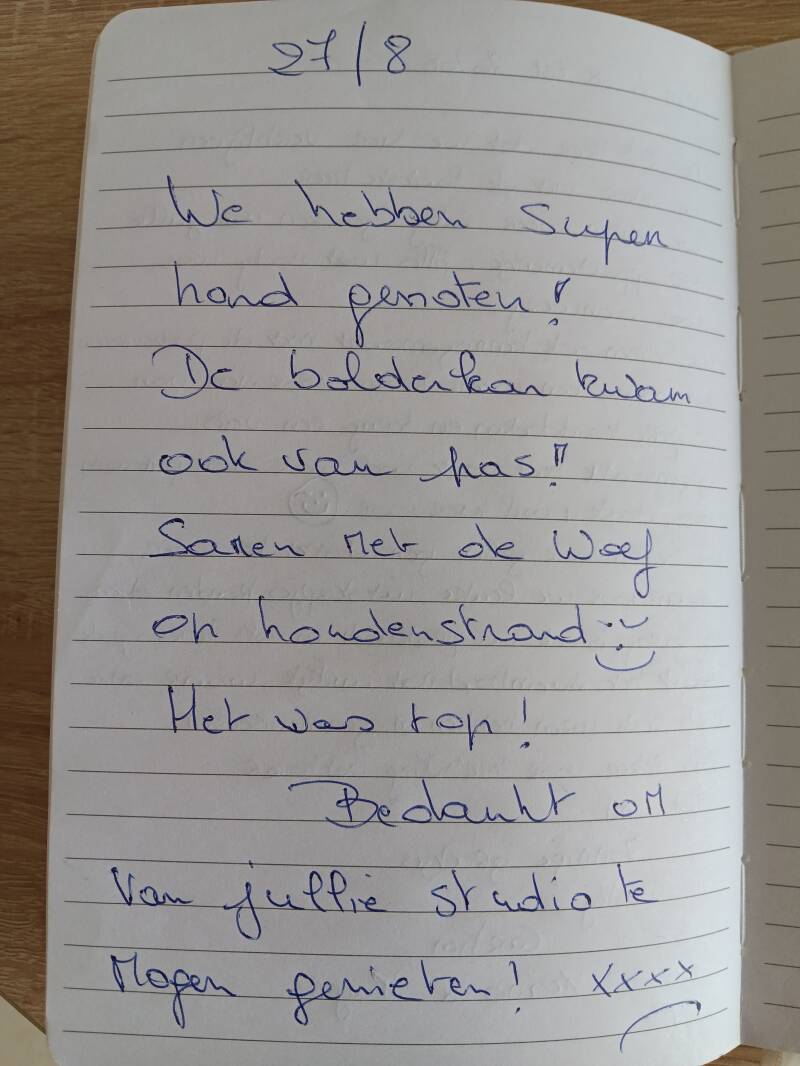 27/8
We hebben super
hard genoten!
De bolderkar kwam
ook van pas!!
Samen met de Woef
op hondenstrand :)
Het was top!
Bedankt om
van jullie studio te
mogen genieten! xxxx